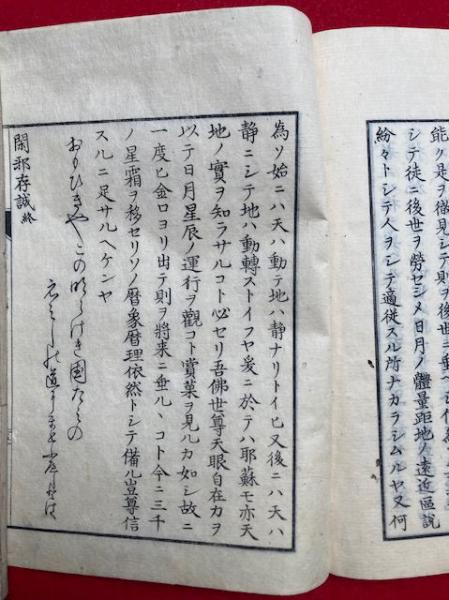 能ク是ヲ徹見シテ則ヲ後世ニ垂
シテ徒ニ後世ヲ勞セシメ日月ノ體量距地ノ遠近區說
紛々トシテ人ヲシテ適從スル所ナカラシムルヤ又何
為ソ始ニハ天ハ動テ地ハ靜ナリトイヒ又後ニハ天ハ
靜ニシテ地ハ動轉ストイフヤ爰ニ於テハ耶蘇モ亦天
地ノ實ヲ知ラサルコト必セリ吾佛世尊天眼自在力ヲ
以テ日月星辰ノ運行ヲ觀コト賞菓ヲ見ルカ如シ故ニ
一度ヒ金口ヨリ出テ則ヲ將来ニ垂ル丶コト今ニ三千
ノ星霜ヲ移セリソノ曆象曆理依然トシテ備ル豈尊信
スルニ足サルヘケンヤ
おもひきやこの明らけき國たみの
道
閑邪存誠終